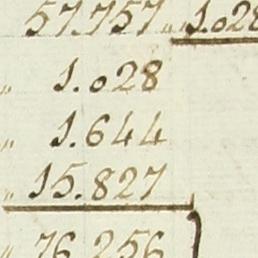 57.757 „ 1.028
„ 1.028
„ 1.644
„ 15.827
„ 76.256